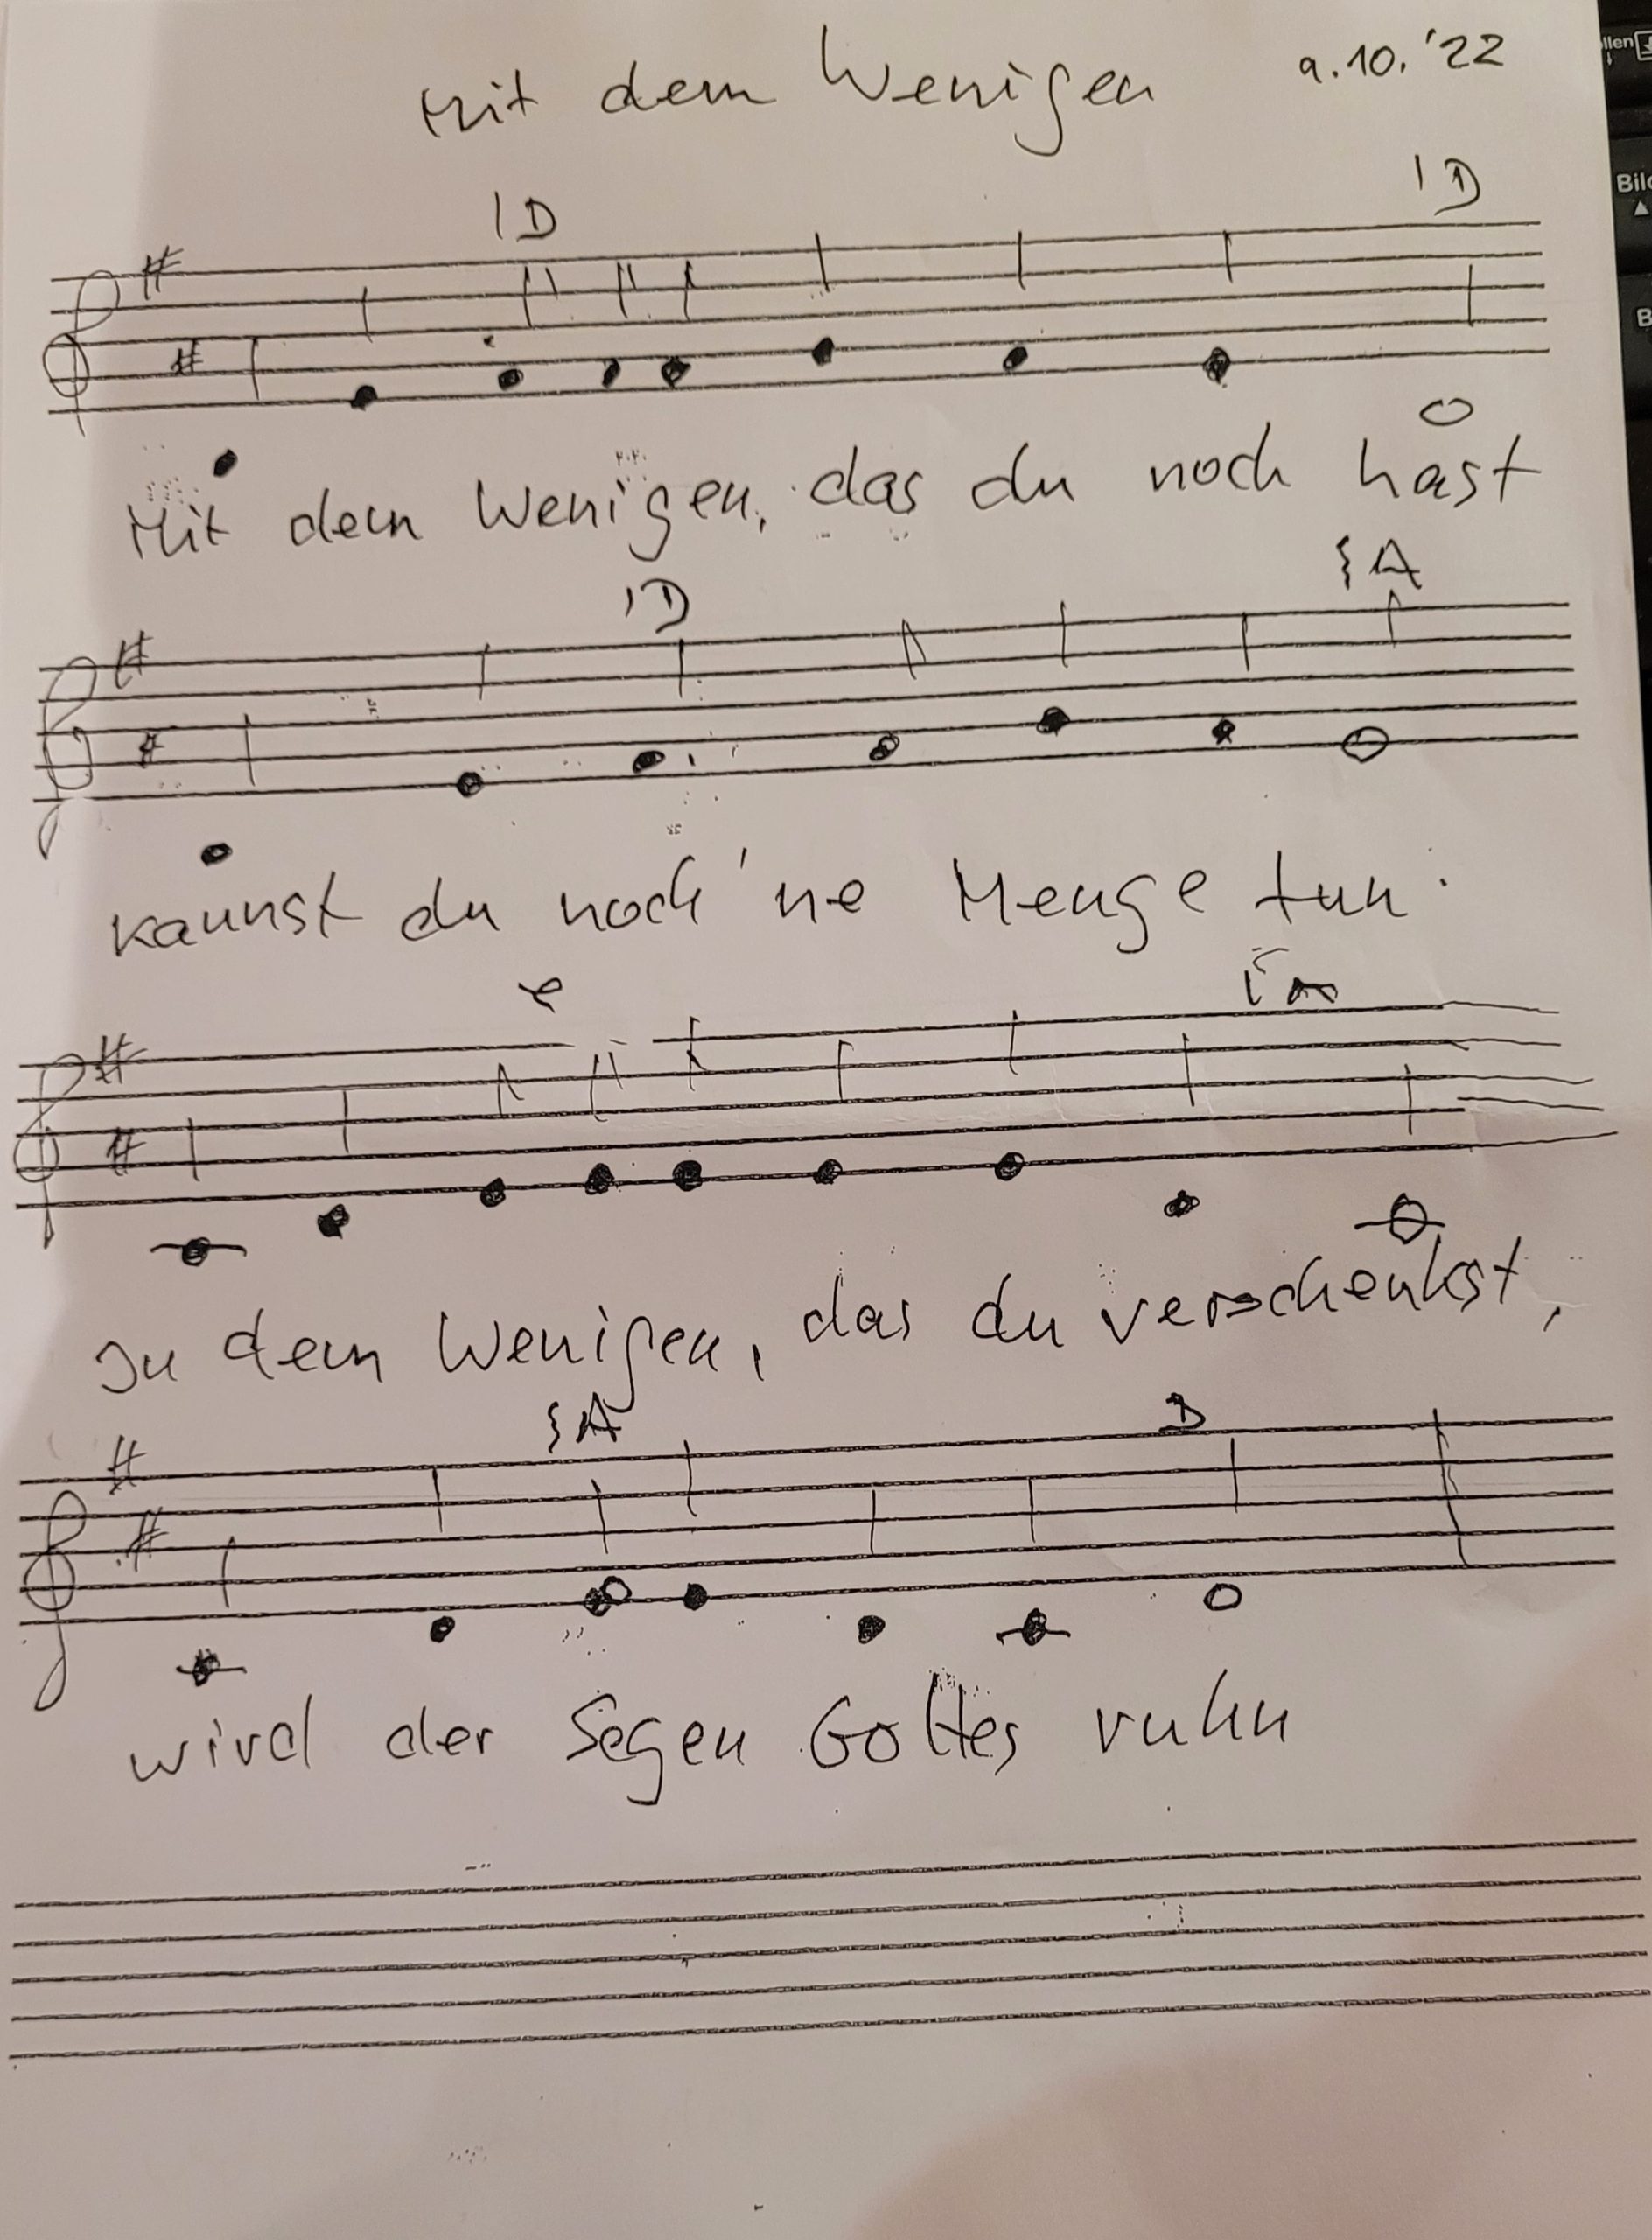 Mit dem Wenigen 9.10.'22
D D
Mit dem Wenigen, das du noch hast
D A
kannst du noch 'ne Menge tun:
e
In dem Wenigen, das du verschenkst,
A D
wird der Segen Gottes ruhn
llen
Bild
B